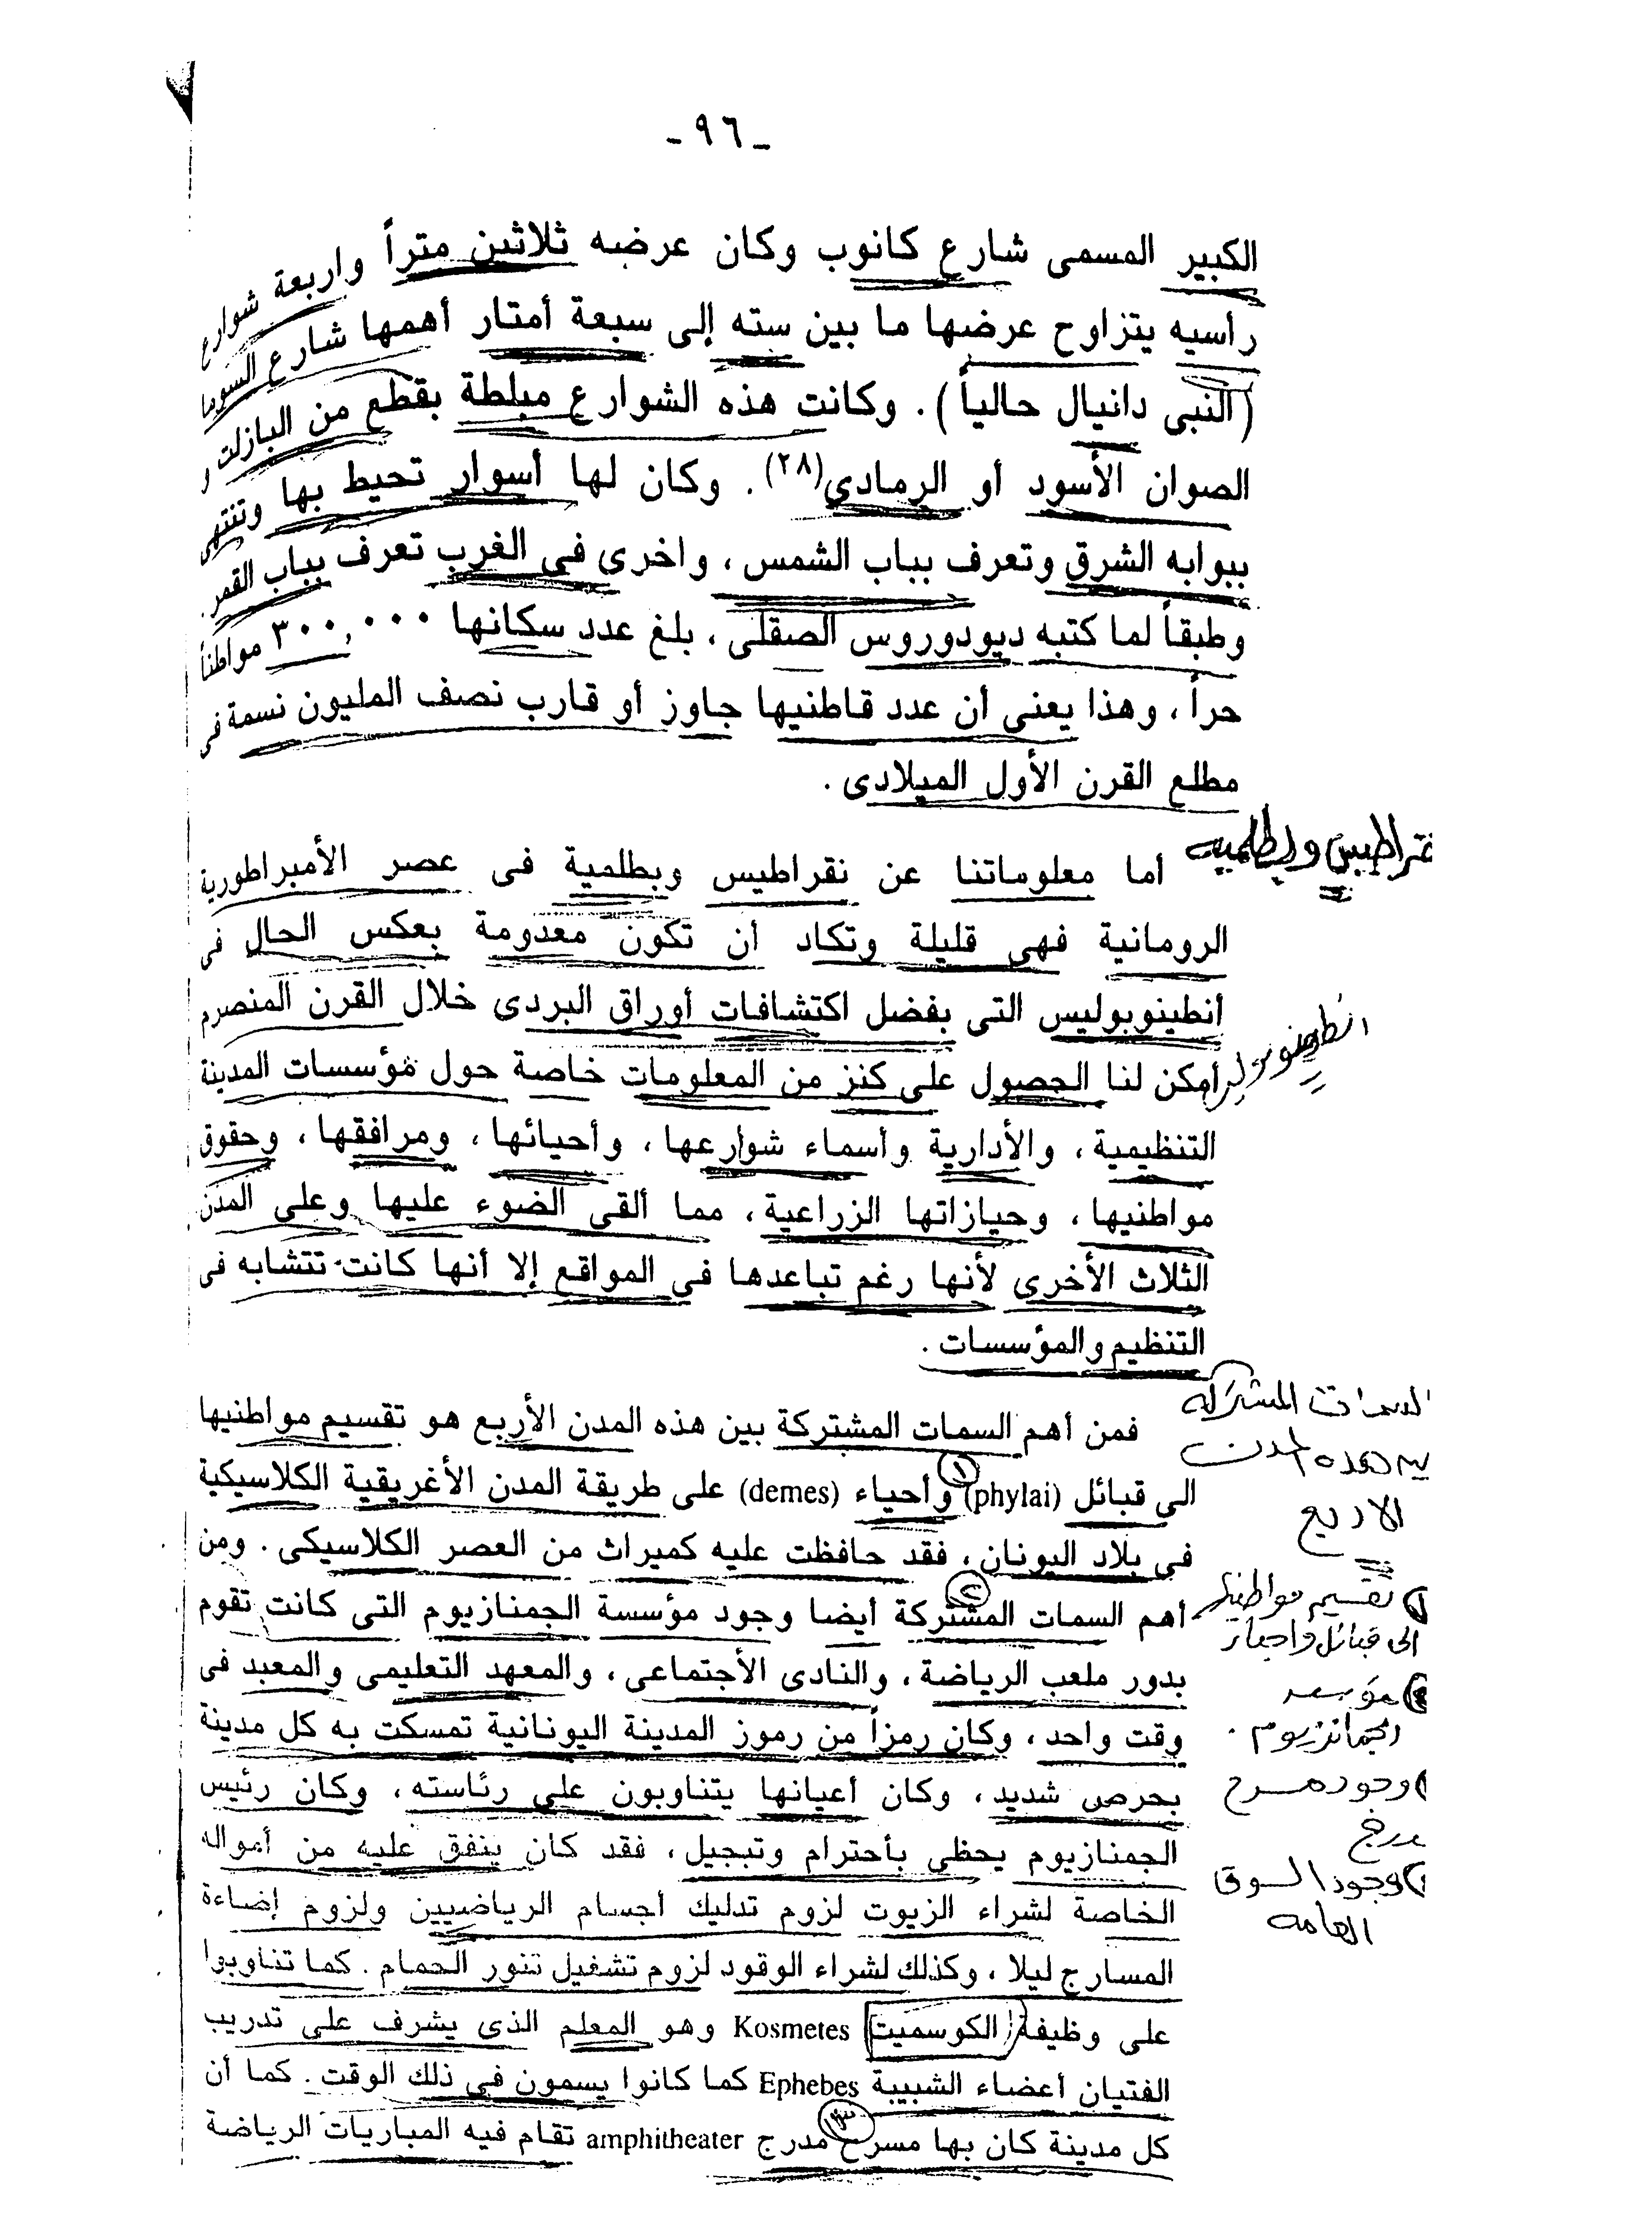 -٩٦-
الكبير المسمى شارع كانوب وكان عرضه ثلاثين متراً واربعة شوارع
رأسيه يتزاوح عرضها ما بين سته إلى سبعة أمتار أهمها شارع السوما
(النبى دانيال حالياً). وكانت هذه الشوارع مبلطة بقطع من البازلت و
الصوان الأسود أو الرمادى(٢٨). وكان لها أسوار تحيط بها وتنتهى
ببوابه الشرق وتعرف بباب الشمس، واخرى فى الغرب تعرف بباب القمر.
وطبقاً لما كتبه ديودوروس الصقلى، بلغ عدد سكانها ٣٠٠,٠٠٠ مواطناً
حراً، وهذا يعنى أن عدد قاطنيها جاوز أو قارب نصف المليون نسمة فى
مطلع القرن الأول الميلادى.
نقراطيس وبطلمية
أما معلوماتنا عن نقراطيس وبطلمية فى عصر الأمبراطورية
الرومانية فهى قليلة وتكاد أن تكون معدومة بعكس الحال فى
أنطينوبوليس التى بفضل اكتشافات أوراق البردى خلال القرن المنصرم
انطينوبوليس
أمكن لنا الحصول على كنز من المعلومات خاصة حول مؤسسات المدينة
التنظيمية، والأدارية وأسماء شوارعها، وأحيائها، ومرافقها، وحقوق
مواطنيها، وحيازاتها الزراعية، مما ألقى الضوء عليها وعلى المدن
الثلاث الأخرى لأنها رغم تباعدها فى المواقع إلا أنها كانت تتشابه فى
التنظيم والمؤسسات.
السمات المشتركه
بين هذه المدن
الاربع
فمن أهم السمات المشتركة بين هذه المدن الأربع هو تقسيم مواطنيها
الى قبائل (phylai) ١ وأحياء (demes) على طريقة المدن الأغريقية الكلاسيكية
فى بلاد اليونان، فقد حافظت عليه كميراث من العصر الكلاسيكى. ومن
أهم السمات المشتركة ٢ أيضا وجود مؤسسة الجمنازيوم التى كانت تقوم
١) تقسيم مواطنيها
الى قبائل واحياء
بدور ملعب الرياضة، والنادى الأجتماعى، والمعهد التعليمى والمعبد فى
مؤسسه
الجمانزيوم.
وقت واحد، وكان رمزاً من رموز المدينة اليونانية تمسكت به كل مدينة
بحرص شديد، وكان أعيانها يتناوبون على رئاسته، وكان رئيس
) وجود مسرح
مدرج
الجمنازيوم يحظى بأحترام وتبجيل، فقد كان ينفق عليه من أمواله
) وجود السوق
العامه
الخاصة لشراء الزيوت لزوم تدليك اجسام الرياضيين ولزوم إضاءة
المسارج ليلا، وكذلك لشراء الوقود لزوم تشغيل تنور الحمام. كما تناوبوا
على وظيفة (الكوسميت Kosmetes وهو المعلم الذى يشرف على تدريب
الفتيان أعضاء الشبيبة Ephebes كما كانوا يسمون فى ذلك الوقت. كما أن
كل مدينة كان بها مسرح ٣ مدرج amphitheater تقام فيه المباريات الرياضة